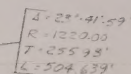 Δ = 23°-41'-59
R = 1220.00
T = 255.98'
L = 504.639'